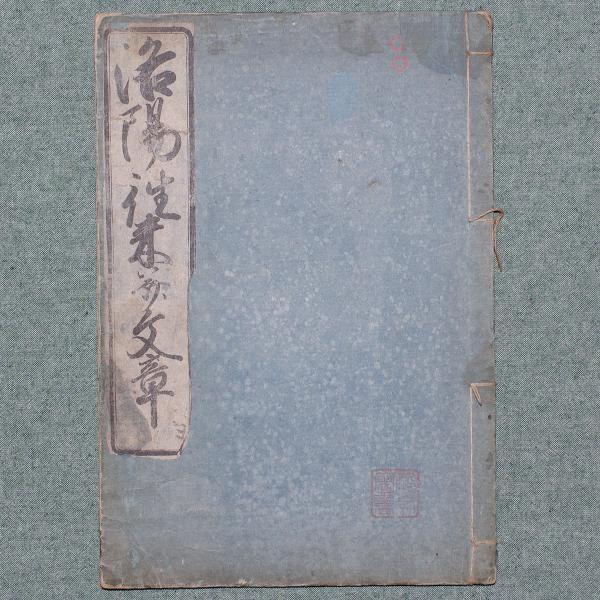 洛陽往来文章